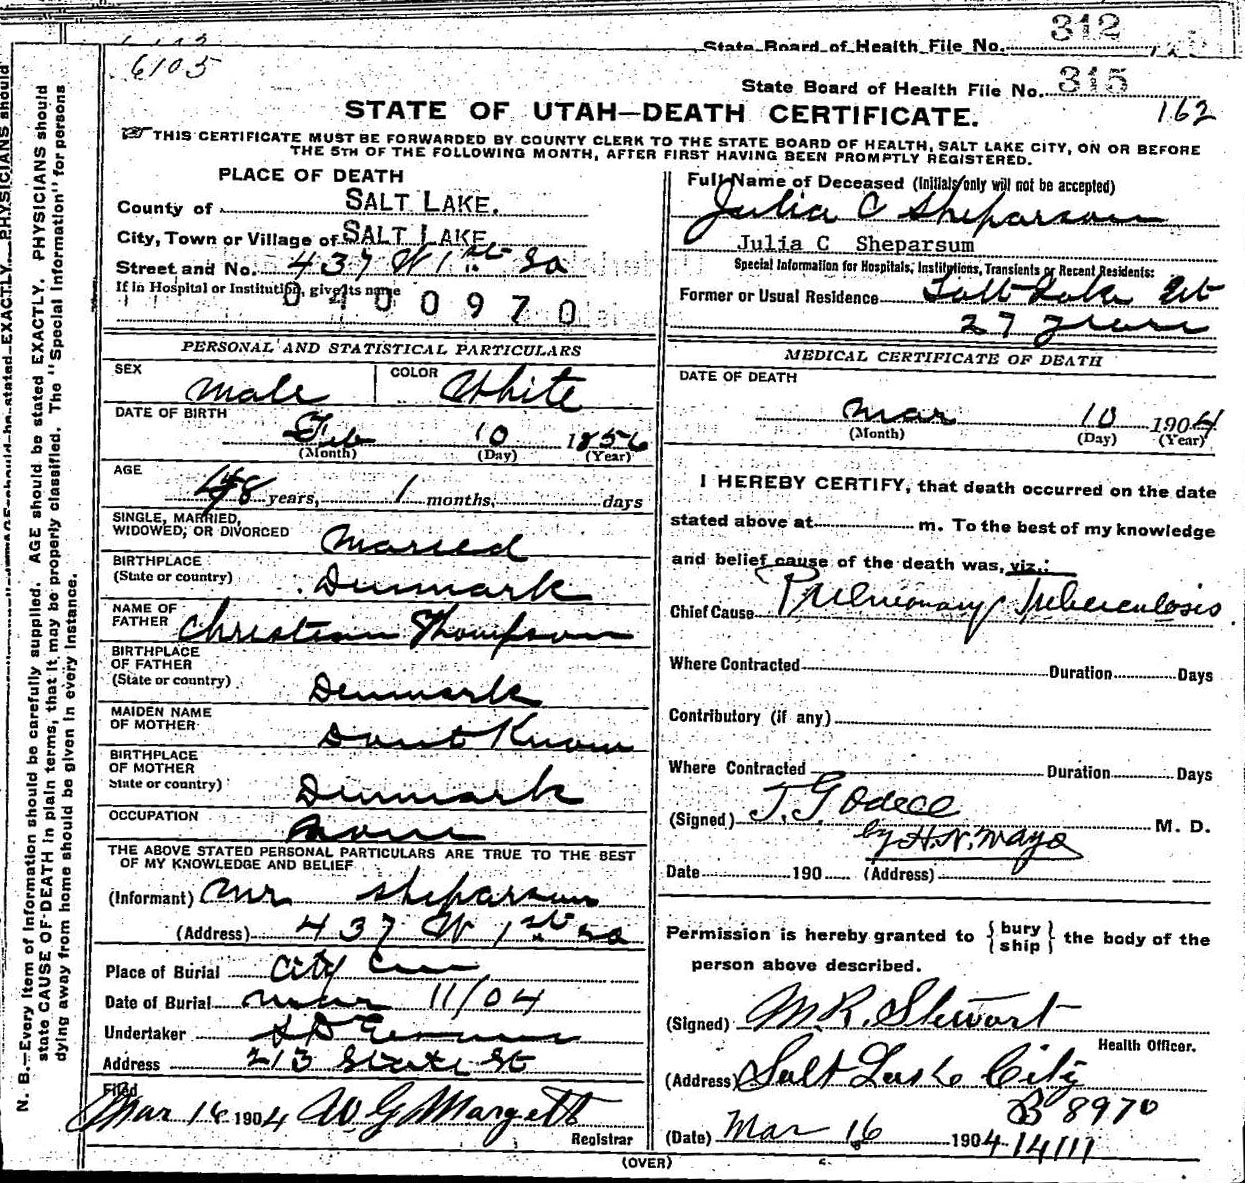 State Board of Health File No. 312
6105
State Board of Health File No. 315
162
STATE OF UTAH—DEATH CERTIFICATE.
THIS CERTIFICATE MUST BE FORWARDED BY COUNTY CLERK TO THE STATE BOARD OF HEALTH, SALT LAKE CITY, ON OR BEFORE
THE 5TH OF THE FOLLOWING MONTH, AFTER FIRST HAVING BEEN PROMPTLY REGISTERED.
PLACE OF DEATH
County of SALT LAKE.
City, Town or Village of SALT LAKE
Street and No. 437 W 1st So
If in Hospital or Institution, give its name
0400970
PERSONAL AND STATISTICAL PARTICULARS
SEX Male COLOR White
DATE OF BIRTH
Feb 10 1856
(Month) (Day) (Year)
AGE
48 years, 1 months, days
SINGLE, MARRIED,
WIDOWED, OR DIVORCED Married
BIRTHPLACE
(State or country) Denmark
NAME OF
FATHER Christian Thompson
BIRTHPLACE
OF FATHER
(State or country) Denmark
MAIDEN NAME
OF MOTHER Dont Know
BIRTHPLACE
OF MOTHER
State or country) Denmark
OCCUPATION None
THE ABOVE STATED PERSONAL PARTICULARS ARE TRUE TO THE BEST
OF MY KNOWLEDGE AND BELIEF
(Informant) Mr Sheparsum
(Address) 437 W 1st So
Place of Burial City Cem
Date of Burial Mar 11/04
Undertaker S D Evans
Address 213 State St
Filed
Mar 16 1904 W G Margett
Registrar
Full Name of Deceased (Initials only will not be accepted)
Julia C Sheparsum
Julia C Sheparsum
Special Information for Hospitals, Institutions, Transients or Recent Residents:
Former or Usual Residence Salt Lake Ut
27 years
MEDICAL CERTIFICATE OF DEATH
DATE OF DEATH
Mar 10 1904
(Month) (Day) (Year)
I HEREBY CERTIFY, that death occurred on the date
stated above at m. To the best of my knowledge
and belief cause of the death was, viz.:
Chief Cause Pulmonary Tuberculosis
Where Contracted Duration Days
Contributory (if any)
Where Contracted Duration Days
(Signed) T. G Odell M. D.
by H. N. Mayo
Date 190 (Address)
Permission is hereby granted to {bury
ship} the body of the
person above described.
(Signed) M. R. Stewart
Health Officer.
(Address) Salt Lake City
B 8970
(Date) Mar 16 1904 14111
(OVER)
N. B.—Every item of information should be carefully supplied. AGE should be stated EXACTLY. PHYSICIANS should
state CAUSE OF DEATH in plain terms, that it may be properly classified. The "Special Information" for persons
dying away from home should be given in every instance.